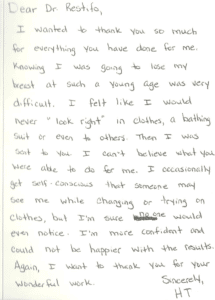 Dear Dr Restifo,
I wanted to thank you so much
for everything you have done for me.
Knowing I was going to lose my
breast at such a young age was very
difficult. I felt like I would
never "look right" in clothes, a bathing
suit or even to others. Then I was
sent to you. I can't believe what you
were able to do for me. I occasionally
get self-conscious that someone may
see me while changing or trying on
clothes, but I'm sure no one would
even notice. I'm more confident and
could not be happier with the results.
Again, I want to thank you for your
wonderful work.
Sincerely,
HT